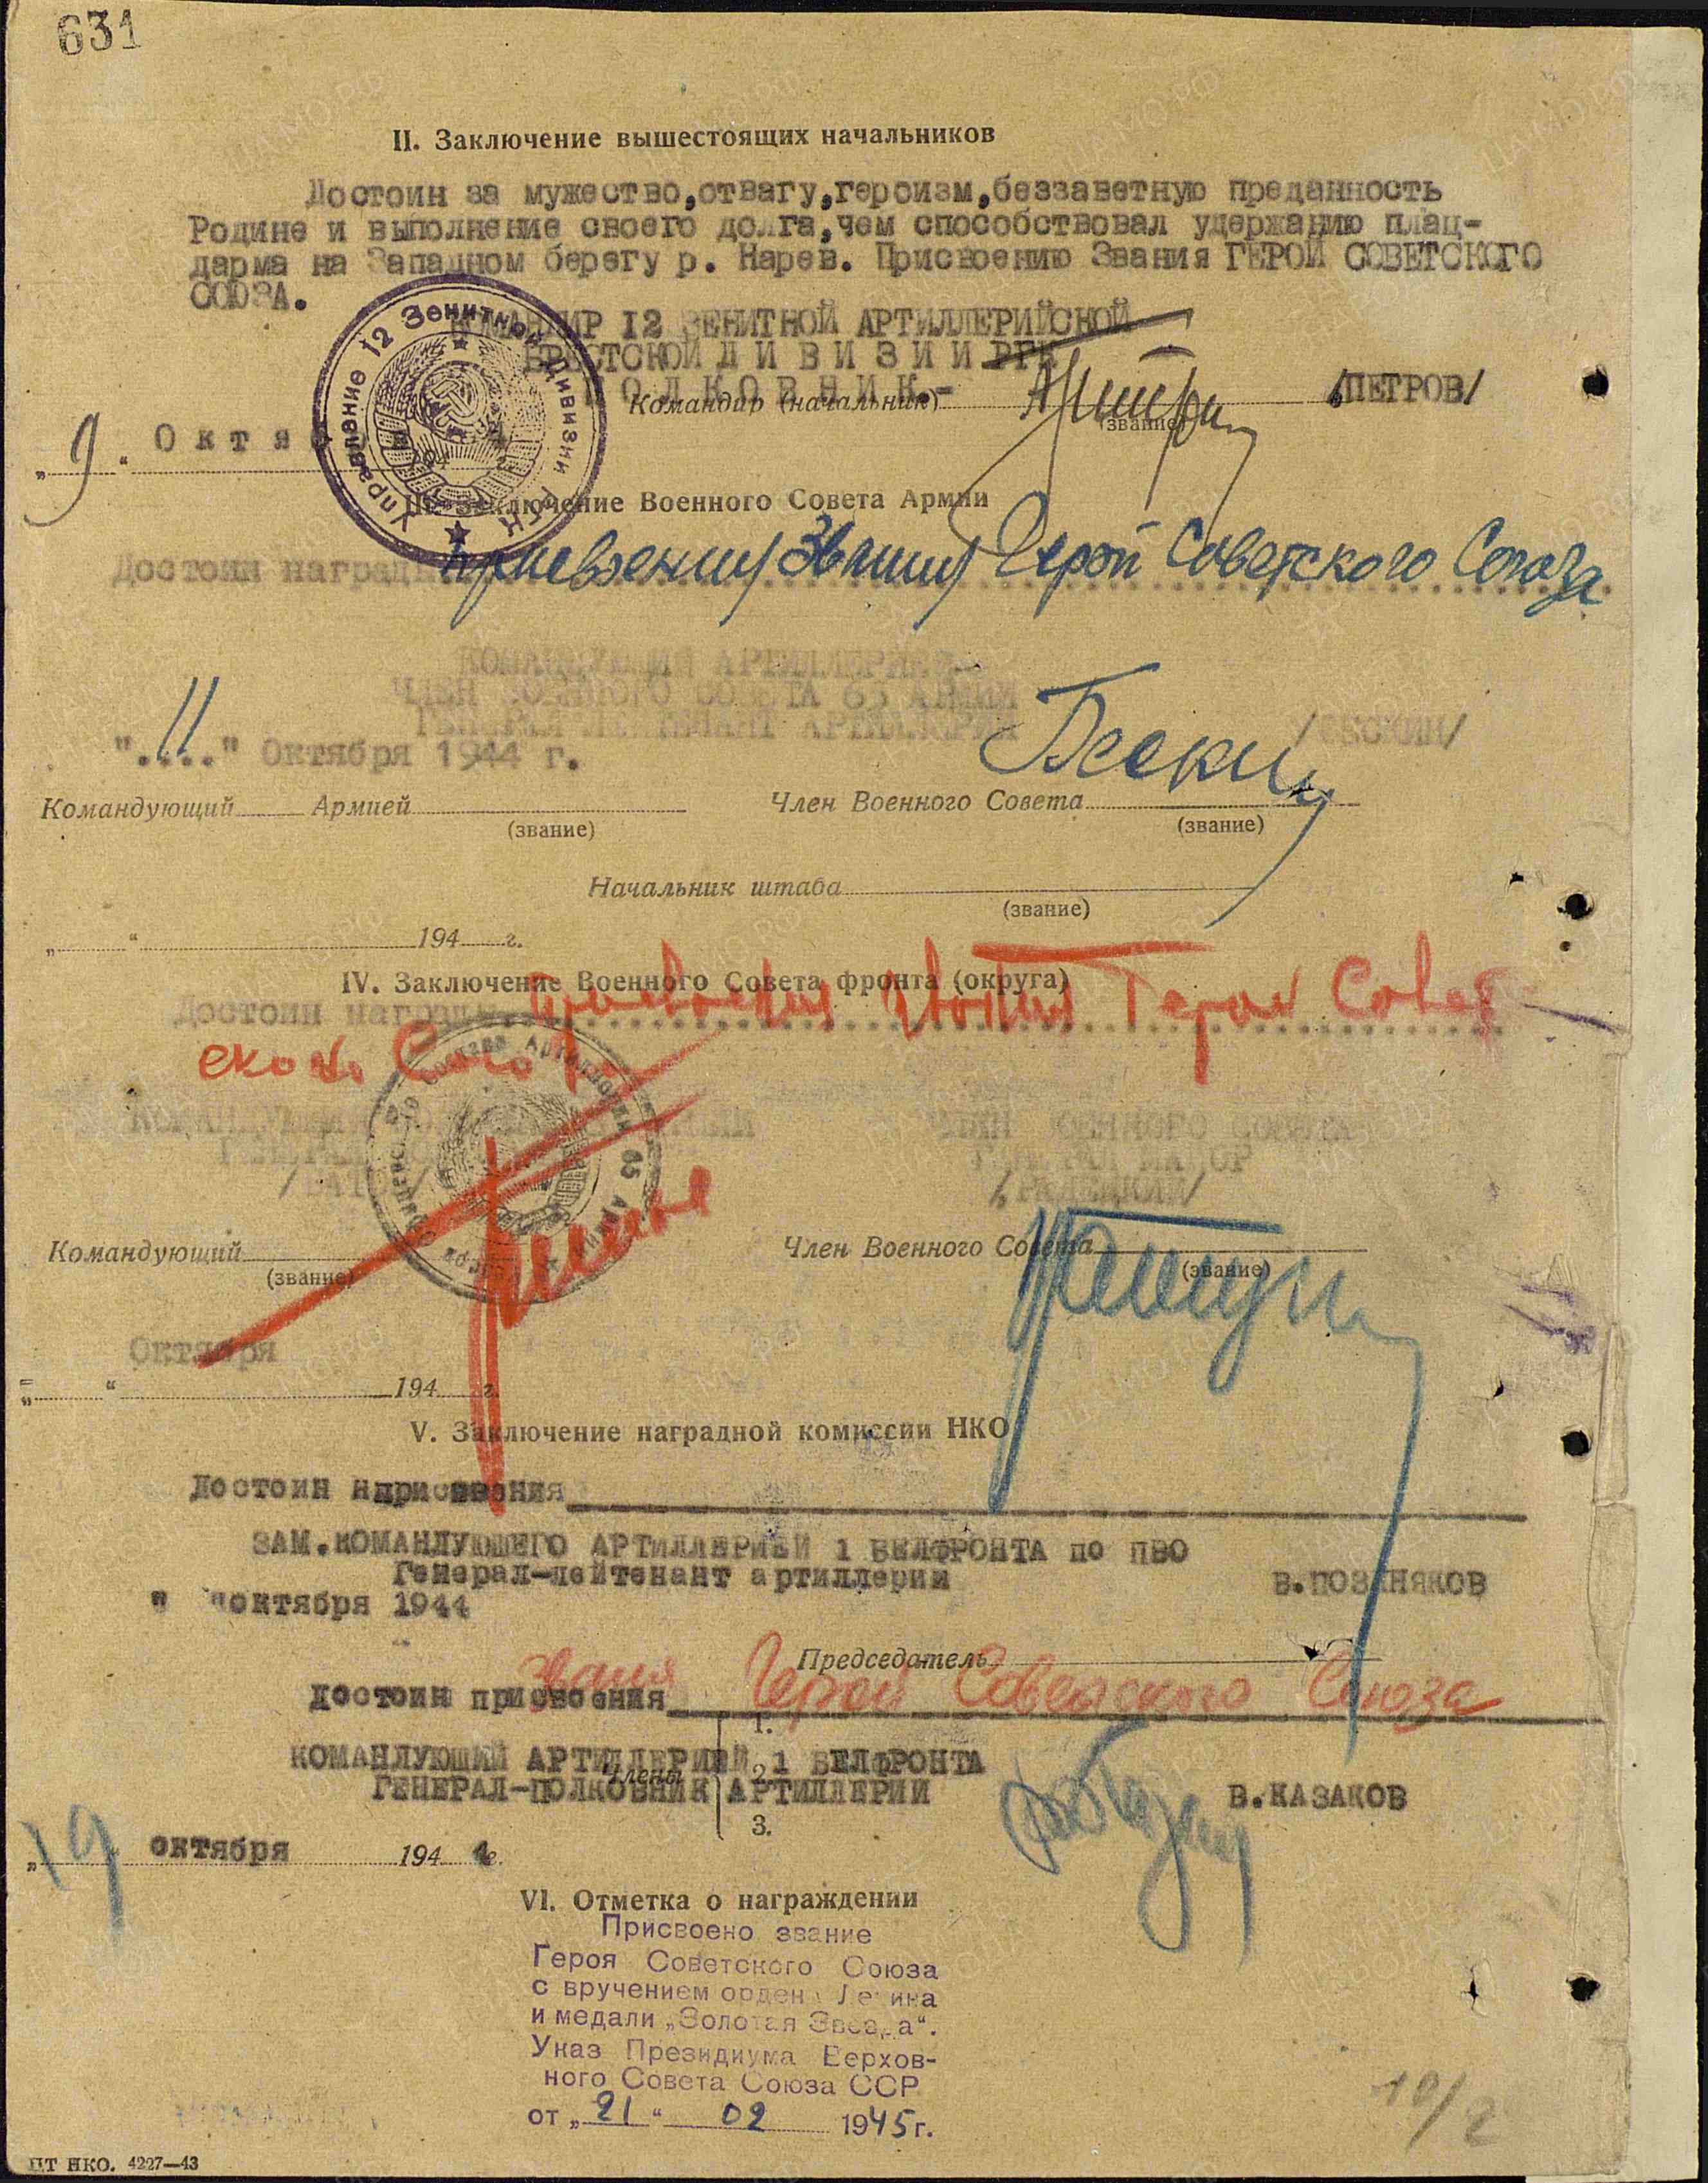 631
II. Заключение вышестоящих начальников
Достоин за мужество,отвагу,героизм,беззаветную преданность
Родине и выполнение своего долга,чем способствовал удержанию плац-
дарма на Западном берегу р. Нарев. Присвоению Звания ГЕРОЙ СОВЕТСКОГО
СОЮЗА.
КОМАНДИР 12 ЗЕНИТНОЙ АРТИЛЛЕРИЙСКОЙ
БРЕСТСКОЙ Д И В И З И И РГК
П О Л К О В Н И К.-
Командир (начальник) /ПЕТРОВ/
(звание)
Управление 12 Зенитной Дивизии РГК
„9“ Октя
III. Заключение Военного Совета Армии
Достоин награды присвоения Звания Герой Советского Союза
КОМАНДУЮЩИЙ АРТИЛЛЕРИЕЙ-
ЧЛЕН ВОЕННОГО СОВЕТА 65 АРМИИ
ГЕНЕРАЛ ЛЕЙТЕНАНТ АРТИЛЛЕРИИ
/БЕСКИН/
"11" Октября 1944 г.
Командующий Армией
Член Военного Совета
(звание)
(звание)
Начальник штаба
(звание)
„ “ 194 г.
IV. Заключение Военного Совета фронта (округа)
Достоин награды присвоения звания Героя Совет
ского Союза
КОМАНДУЮЩИЙ
ЧЛЕН ВОЕННОГО СОВЕТА
ГЕНЕРАЛ МАЙОР
/БАТОВ/
/РАДЕЦКИЙ/
Командующий
Член Военного Совета
(звание)
(звание)
Октября
„ “ 194 г.
V. Заключение наградной комиссии НКО
Достоин присвоения
ЗАМ.КОМАНДУЮЩЕГО АРТИЛЛЕРИЕЙ 1 БЕЛФРОНТА по ПВО
Генерал-лейтенант артиллерии В.ПОЗДНЯКОВ
" "октября 1944
Председатель
звания Герой Советского Союза
достоин присвоения
1.
КОМАНДУЮЩИЙ АРТИЛЛЕРИЕЙ 1 БЕЛФРОНТА
Члены 2.
ГЕНЕРАЛ-ПОЛКОВНИК АРТИЛЛЕРИИ В.КАЗАКОВ
3.
„19 октября 1944 г.
VI. Отметка о награждении
Присвоено звание
Героя Советского Союза
с вручением ордена Ленина
и медали „Золотая Звезда“.
Указ Президиума Верхов-
ного Совета Союза ССР
от „21“ 02 1945 г.
ЦТ НКО. 4227—43